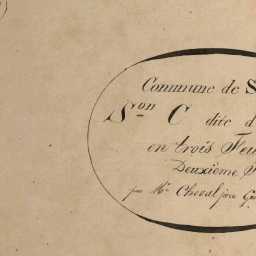 Commune de S
Son C dite d
en trois Feu
Deuxième F
par Mr Cheval